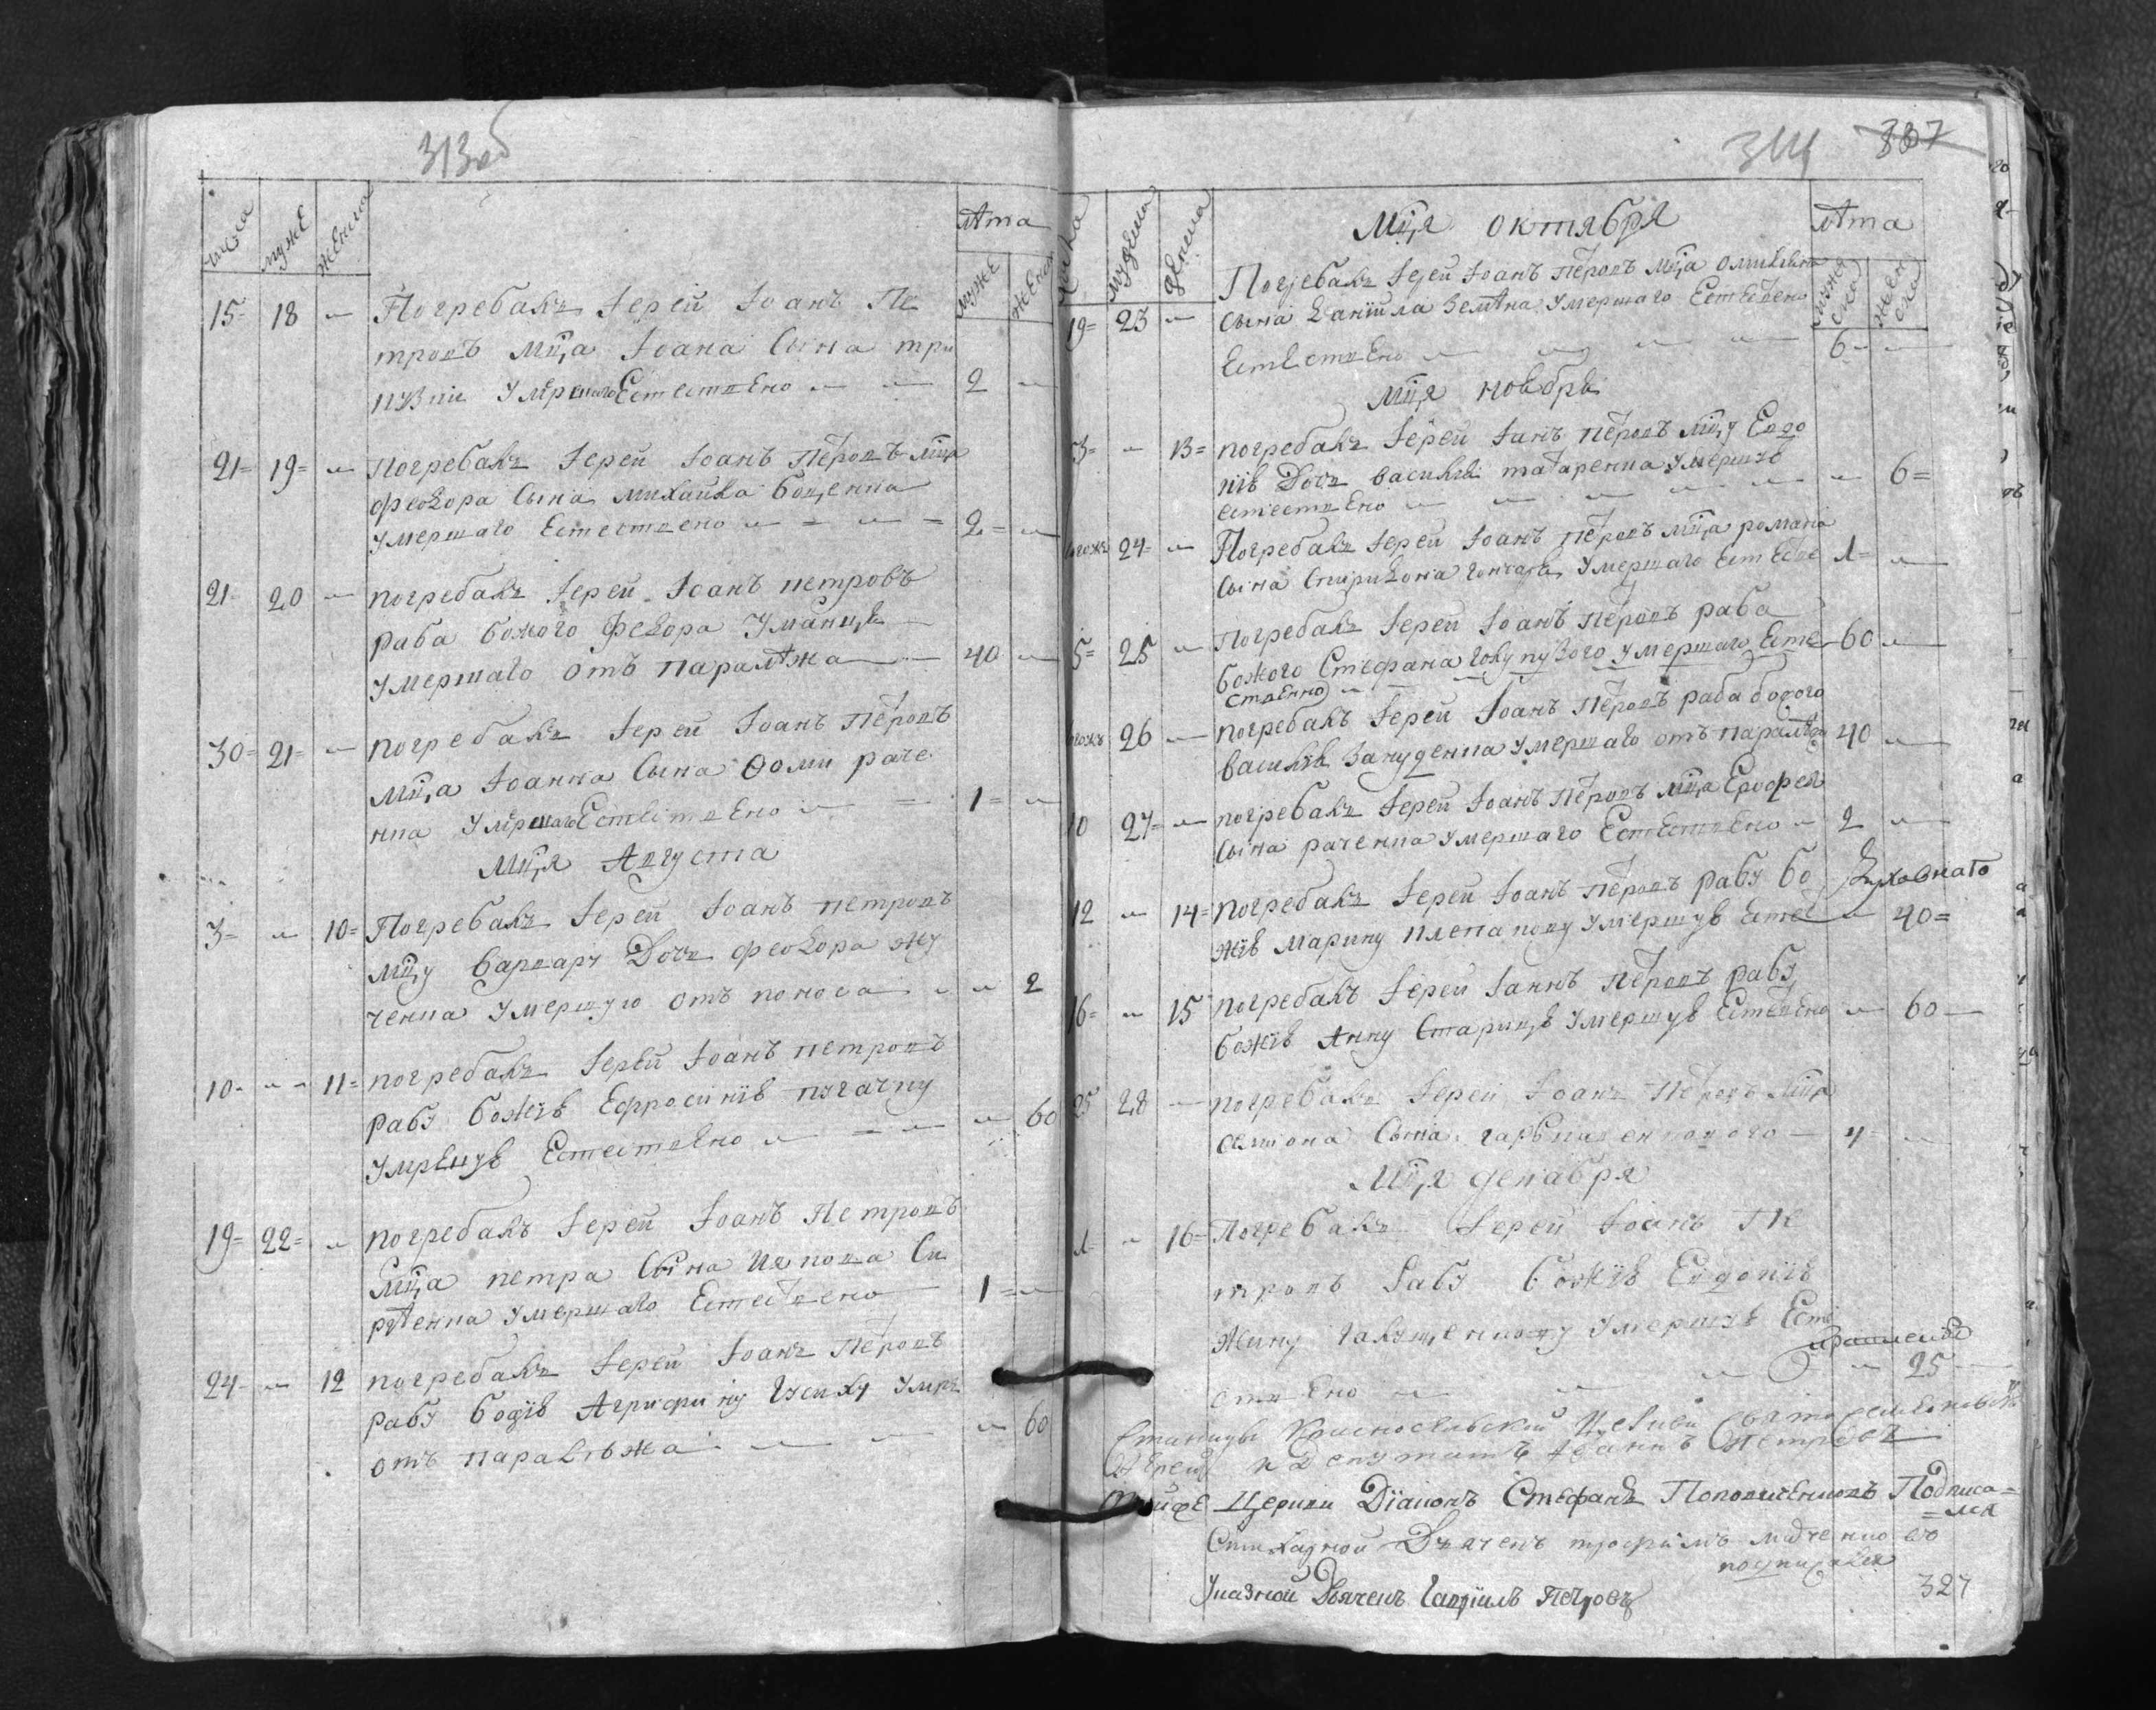 313об
числа муже женска лѣта муже женск
15= 18 Погребалъ Іерей Іоанъ Пе
тровъ мца Іоана Сына три
пузии Умершаго Естествено 2
21= 19= Погребалъ Іерей Іоанъ Петровъ мца
феодора Сына михайла боценка
Умершаго Естествено 2=
21= 20 погребалъ Іерей Іоанъ петровъ
раба божого феѳдора Уманца
Умершаго отъ паралѣжа 40
30= 21= погребалъ Іерей Іоанъ Петровъ
мца Іоанна Сына Ѳоми раче
нка Умершаго Естествено 1=
Мця Августа
3= 10= Погребалъ Іерей Іоанъ петровъ
мцу варвару Дочь феодора жу
ченка Умершую отъ поноса 2
10= 11= погребалъ Іерей Іоанъ петровъ
рабу божію Ефросинію пугачку
Умершую Естествено 60
19= 22= погребалъ Іерей Іоанъ Петровъ
мца петра Сына Иакова Си
рѣенка Умершаго Естествено 1=
24= 12 погребалъ Іерей Іоанъ Петровъ
рабу божію Агрифину Гусиху Умер
отъ паралѣжа 60
314 307
Мця октября лѣта
Погребалъ Іерей Іоанъ Петровъ мца
19= 23 Сына Даниила Земѣна Умершаго
Естествено 6
мця ноября
3= 13= погребалъ Іерей Іоанъ Петровъ мцу Евдо
кію Дочь василія татаренка Умершую
естествено 6=
24= Погребалъ Іерей Іоанъ Петровъ мца романа
Сына Спиридона гончара Умершаго Естестве 1=
5= 25 Погребалъ Іерей Іоанъ Петровъ раба
божого Стефана голупузого Умершаго Есте 60
ственно
26 погребалъ Іерей Іоанъ Петровъ раба божого
василія Зануденка Умершаго отъ паралѣжа 40
10 27= погребалъ Іерей Іоанъ Петровъ мца Ерофея
Сына раченка Умершаго Естествено 2
12 14= погребалъ Іерей Іоанъ Петровъ рабу бо Духовнаго
жію Марину Умершую Естес 40=
16= 15 погребалъ Іерей Іоанъ Петровъ рабу
божію Анну Старицю Умершую Естествено 60
25 28 погребалъ Іерей Іоанъ Петровъ мца
Сына 4=
Мця декабря
1= 16= Погребалъ Іерей Іоанъ Пе
тровъ рабу божію Евдокію
Жину Галущенкову Умершую Есте
ствено 25
Іерей и Депутатъ Іоаннъ Петровъ
Церкви Діаконъ Стефанъ Подписа=
=лся
Стихарной Дячекъ трофимъ
подписался
Указной Дьячекъ Гавріилъ Петровъ 327